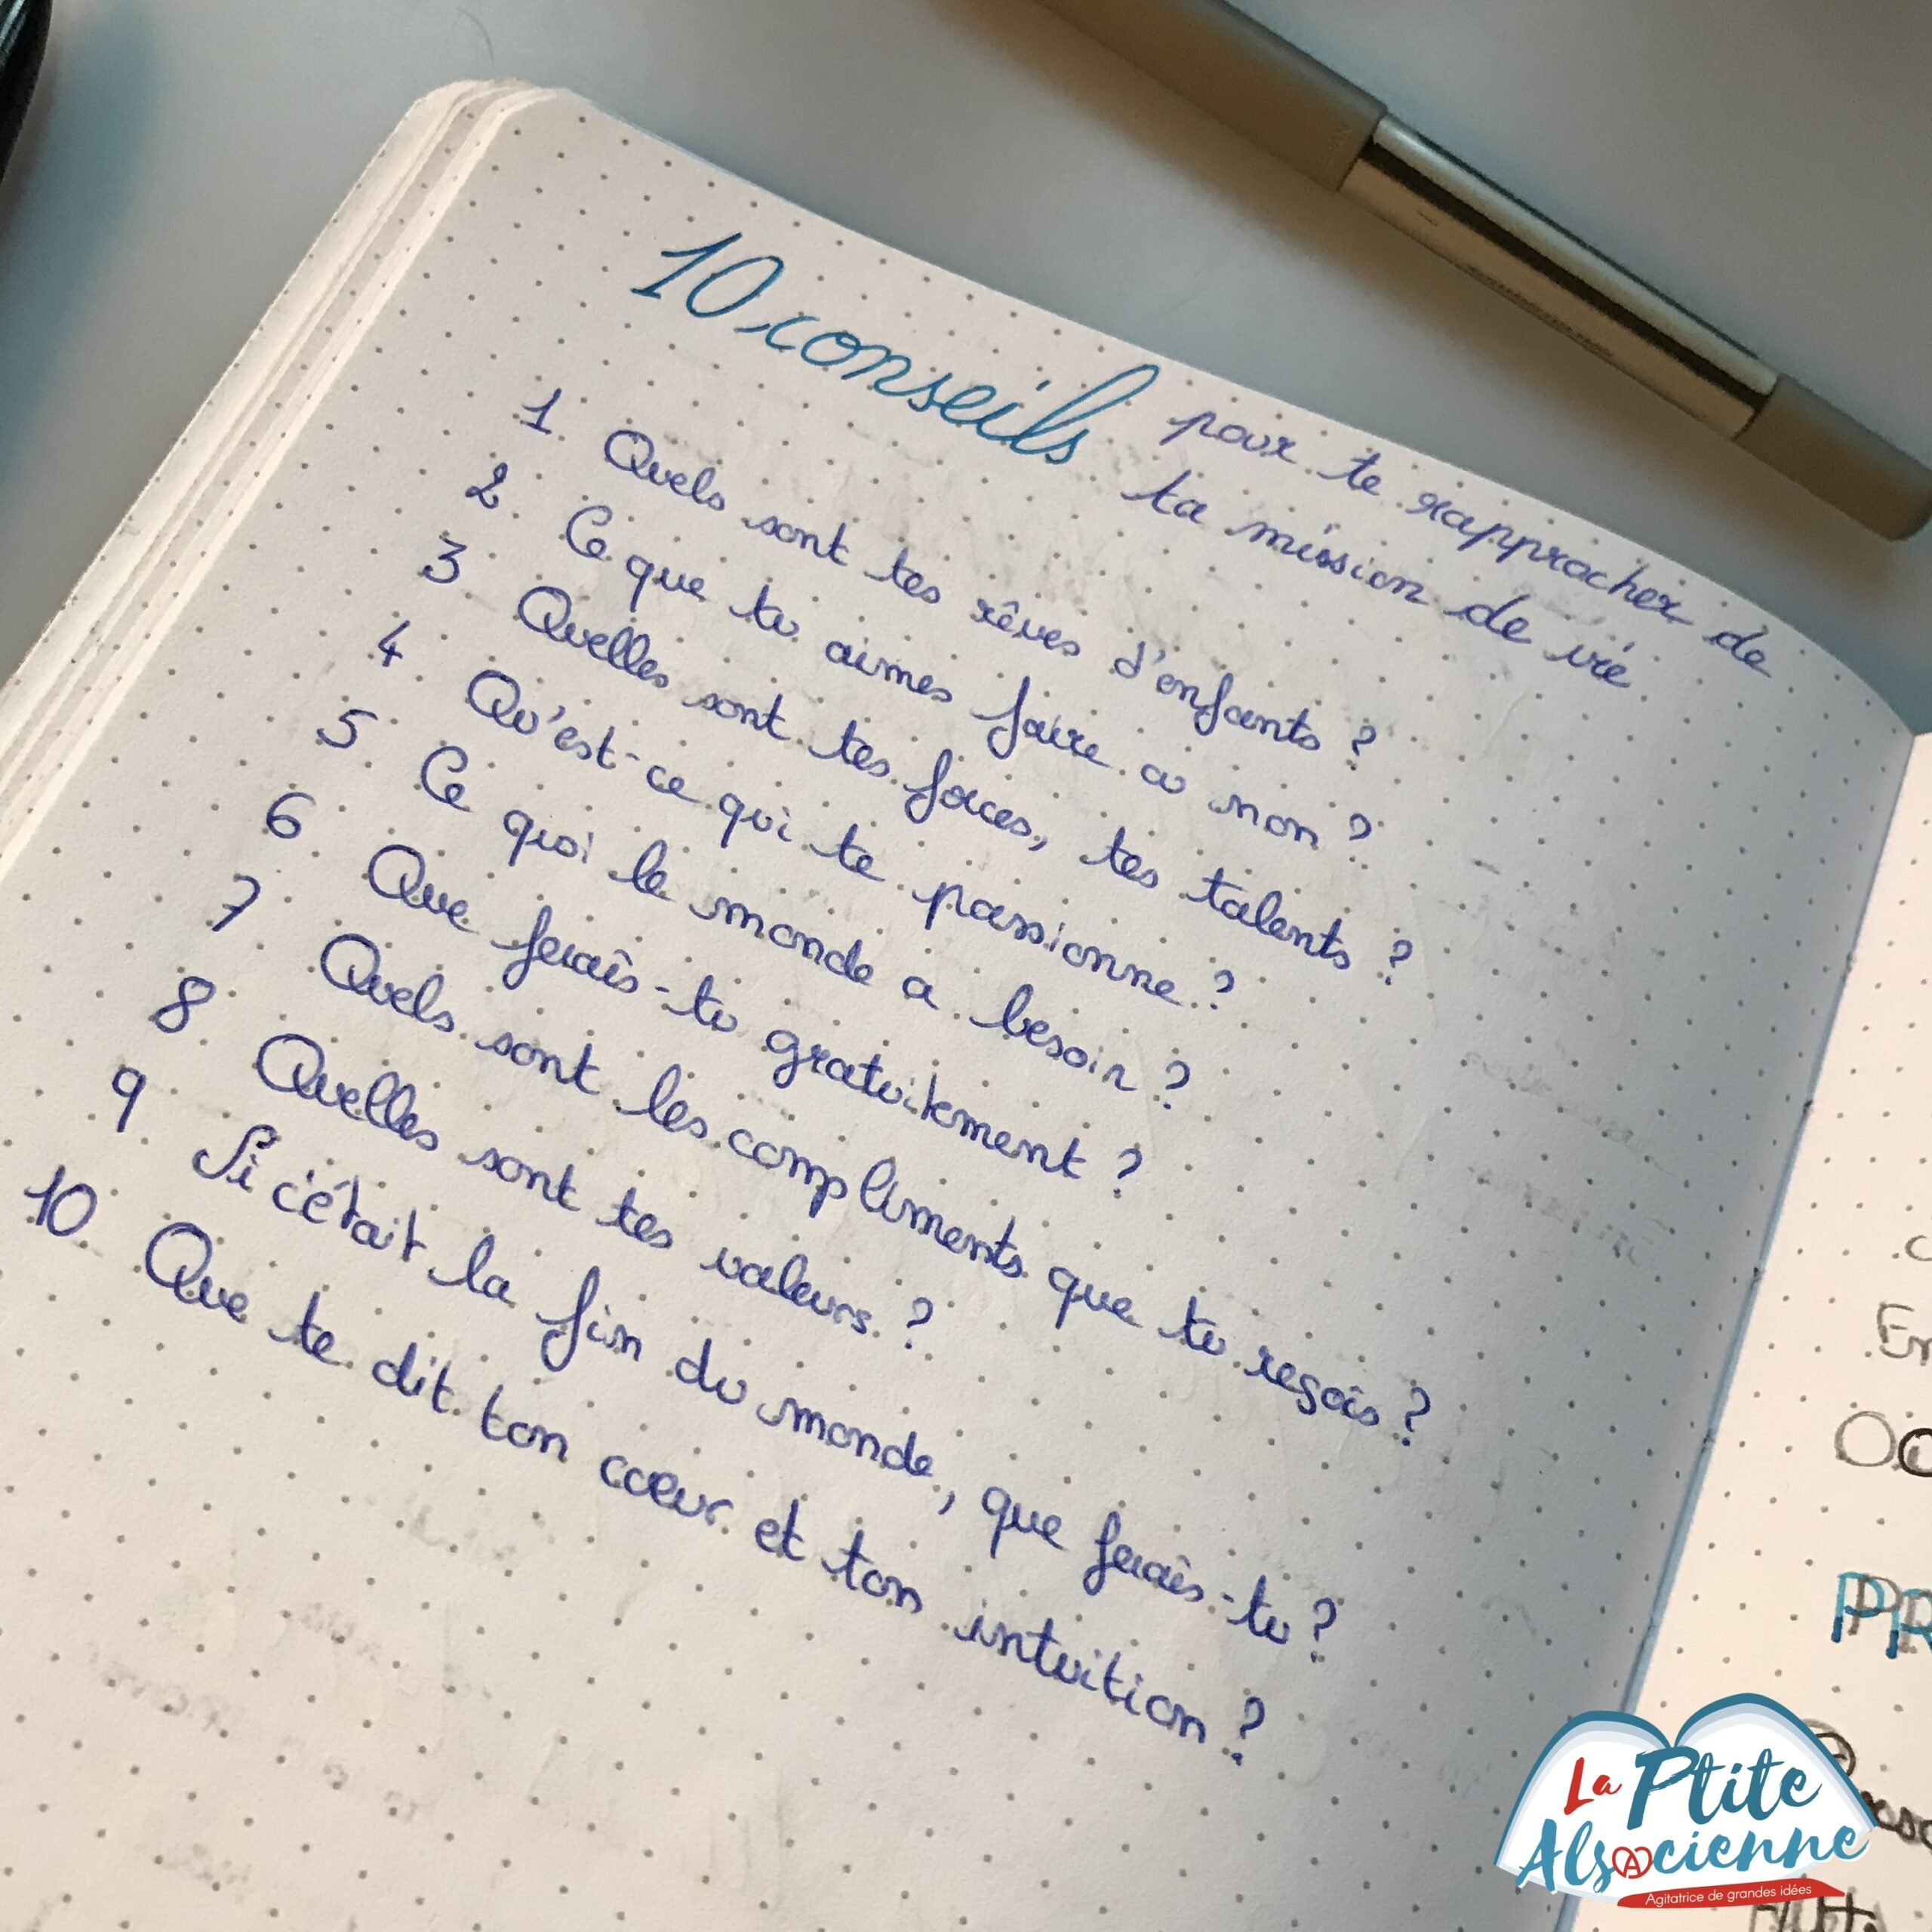 10 conseils pour te rapprocher de
ta mission de vie
1. Quels sont tes rêves d'enfants ?
2. Ce que tu aimes faire ou non ?
3. Quelles sont tes forces, tes talents ?
4 Qu'est-ce qui te passionne ?
5. Ce quoi le monde a besoin ?
6 Que ferais-tu gratuitement ?
7 Quels sont les compliments que tu reçois ?
8 Quelles sont tes valeurs ?
9 Si c'était la fin du monde, que ferais-tu ?
10 Que te dit ton cœur et ton intuition ?
PR
La Ptite
Alsacienne
Agitatrice de grandes idées